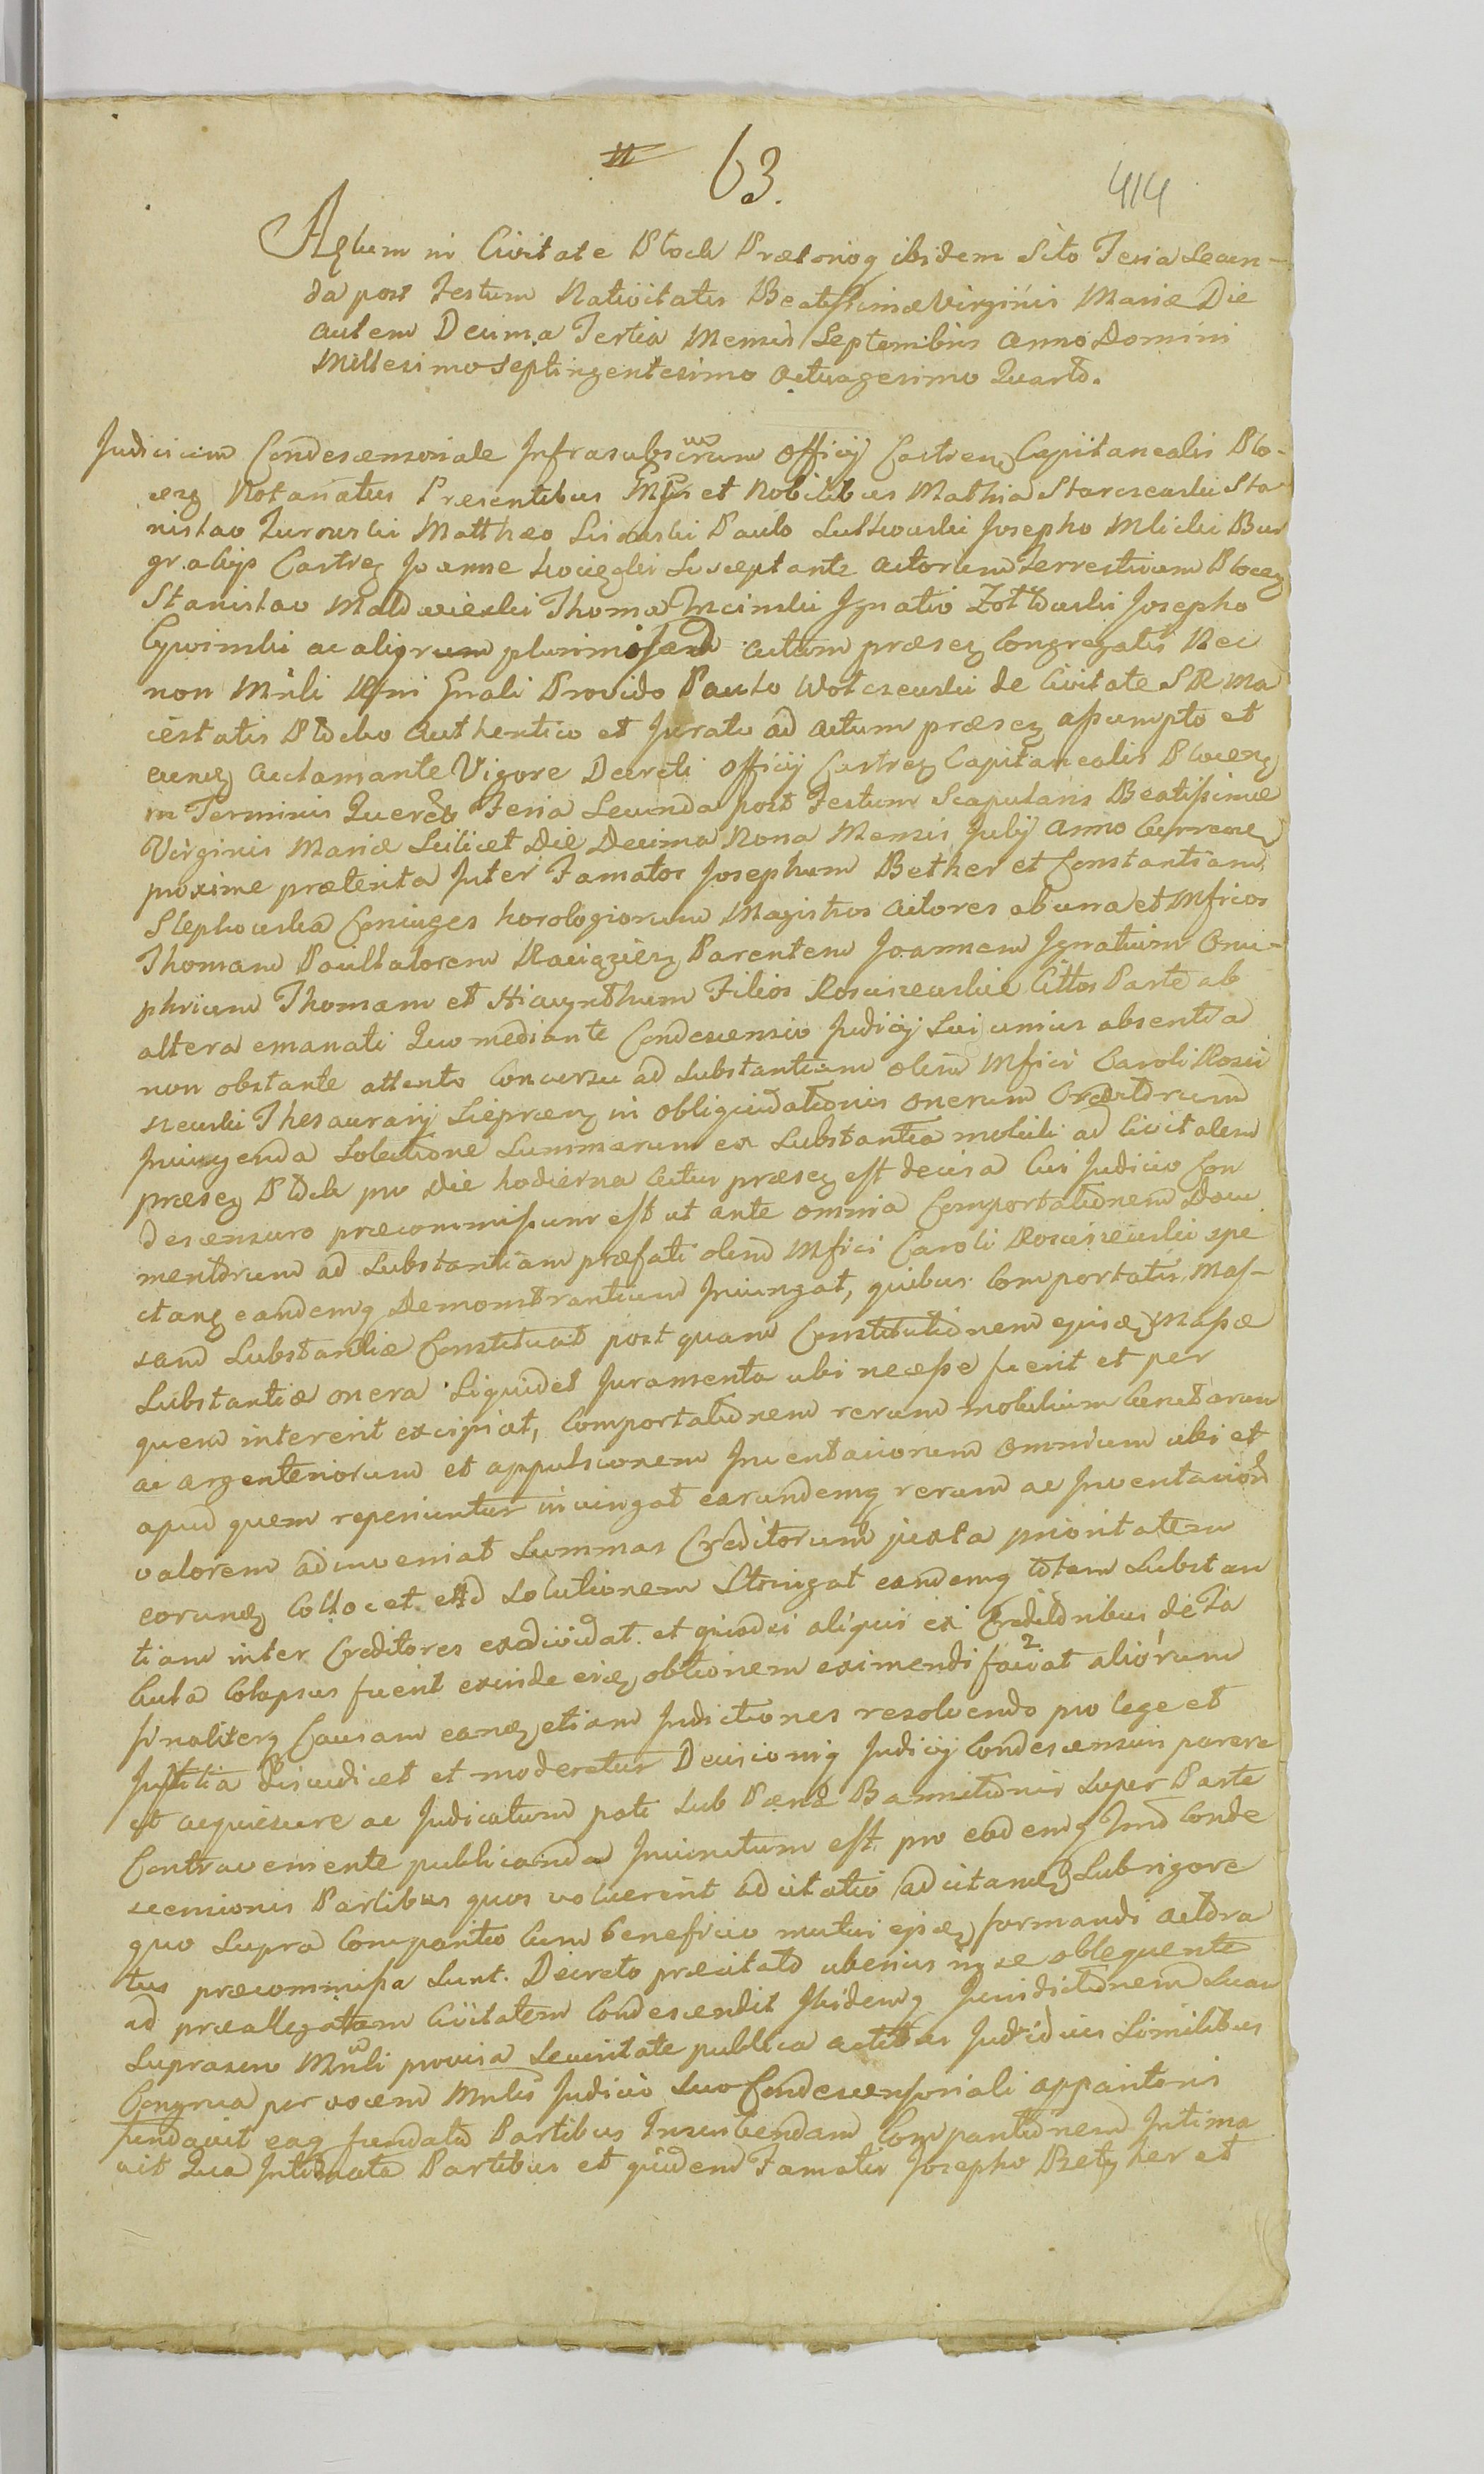 63.
414
Actum in Civitate Plock Prætorioq ibidem Sito Feria Secun-
da post Festum Nativitatis Beatissimæ Virginis Mariæ Die
autem Decima Tertia Mensis Septembris Anno Domini
Millesimo Septingentesimo Octuagesimo Quarto.
Judicium Condescensoriale Infrascriptum Officij Castren Capitanealis Plo-
cen Notariatus Præsentibus et Nobilibus Mathia Starczewski Sta
nislao Matthæo Paulo Sutkowski Josepho Mlicki Bur
grabijs Castren Joanne Susceptante Actorum Terrestrium Plocen
Stanislao Thoma Ignatio Josepho
Cywinski ac aliorum plurimis ad Actum præsen congregatis Nec
non Mnli Rgni Gnali Provido Paulo Wolczewski de Civitate S R Ma
iestatis Plocko authentico et Jurato ad actum præsen assumpto et
acclamante Vigore Decreti Officij Castren Capitanealis Plocen
in Terminis Feria Secunda post Festum Scapularis Beatissimæ
Virginis Mariæ Scilicet Die Decima Nona Mensis Julij Anno Curren
proxime præterita Inter Famatos Josephum Bether et Constantiam
Slepkowska Coniuges horologiorum Magistros Actores ab una et Mficos
Thomam Raciązien Parentem Joannem Ignatium Onu-
phrium Thomam et Hiacynthum Filios Rosciszewskie Cittos Parte ab
altera emanati Quo mediante Condescensio Judicij Sui unius absentia
non obstante attento Concursu ad Substantiam olim Mfici Caroli Rosci
szewski Thesaurarij Sieprcen in obliquidationis onerum Creditorum
Iniungenda Solutione Summarum ex Substantia mobili ad Civitatem
præsen Plock pro Die hodierna Actus præsen est decisa Cui Judicio Con
descensuro præcommissum est ut ante omnia Comportationem Docu
mentorum ad Substantiam præfati olim Mfici Caroli Rosciszewski spe
ctan eandemq Demonstrantium Iniungat, quibus Comportatis Mas-
sam Substantiæ Constituat post quam Constitutionem Massæ
Substantiæ onera Liquidet Juramenta ubi necesse fuerit et per
quem intererit excipiat, Comportationem rerum mobilium
ac argenteriorum et appulsionem Inventariorum omnium ubi et
apud quem reperiuntur iniungat earundemq rerum ac Inventariorum
valorem adinveniat Summas Creditorum juxta prioritatem
Collocet Ad Solutionem Stringat eandemq totam Substan
tiam inter Creditores exdividat et quodsi aliquis ex Creditoribus de Ta
bula Colapsus fuerit exinde obtionem eximendi faciat aliorum
finaliterq Causam etiam Judictiones resolvendo pro lege et
Justitia Diiudicet et moderetur Decisioniq Judicij Condescensuri parere
et acquiescere ac Judicatum pati Sub Pæna Bannitionis Super Parte
Contraveniente publicanda Iniunctum est pro eademq Conde
scensionis Partibus quos voluerint adcitatio adcitan Sub rigore
quo Supra Comparitio Cum beneficio mutui formandi actora
tus præcommissa Sunt. Decreto præcitato uberius in se obloquente
ad præallegatam Civitatem Condescendit Ibidemq Jurisdictionem Suam
Suprascr Mnli provisa Securitate publica actibus Judicijs Similibus
Congrua per vocem Mnlis Judicio Suo Condescensoriali apparitoris
fundavit eaq fundata Partibus Inscribendam Comparitionem Intima
vit Qua Intimata Partibus et quidem Famatis Josepho Bether et